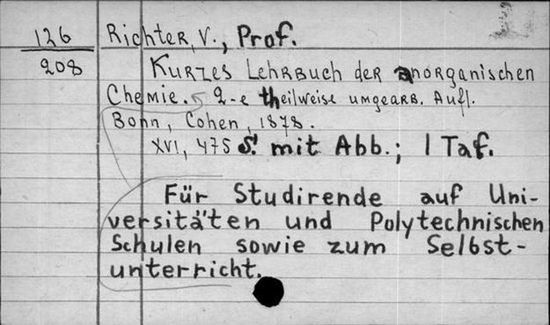 126
208
Richter, V., Prof.
Kurzes Lehrbuch der anorganischen
Chemie. 2-e theilweise umgearb. Aufl.
Bonn, Cohen, 1878.
XVI, 475 S. mit Abb.; 1 Taf.
Für Studirende auf Uni-
versitäten und Polytechnischen
Schulen sowie zum Selbst-
unterricht.